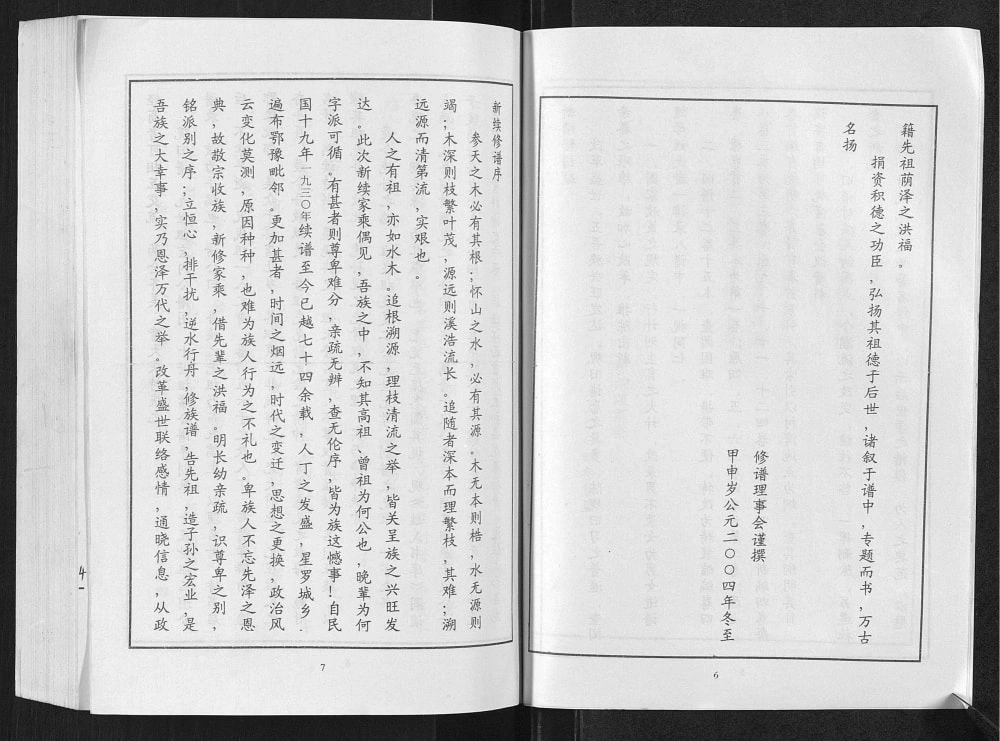 籍先祖荫泽之洪福。
捐资积德之功臣,弘扬其祖德于后世,诸叙于谱中,专题而书,万古
名扬
修谱理事会谨撰
甲申岁公元二〇〇四年冬至
6
新续修谱序
参天之木必有其根;怀山之水,必有其源。木无本则梏,水无源则
竭;木深则枝繁叶茂,源远则溪浩流长。追随者深本而理繁枝,其难;溯
远源而清第流,实艰也。
人之有祖,亦如水木。追根溯源,理枝清流之举,皆关呈族之兴旺发
达。此次新续家乘偶见,吾族之中,不知其高祖、曾祖为何公也,晚辈为何
字派可循。有甚者则尊卑难分,亲疏无辨,查无伦序,皆为族这憾事!自民
国十九年一九三〇年续谱至今已越七十四余载,人丁之发盛,星罗城乡.
遍布鄂豫毗邻。更加甚者,时间之烟远,时代之变迁,思想之更换,政治风
云变化莫测,原因种种,也难为族人行为之不礼也。卑族人不忘先泽之恩
典,故敬宗收族,新修家乘,借先辈之洪福。明长幼亲疏,识尊卑之别,
铭派别之序;立恒心,排干扰,逆水行丹,修族谱,告先祖,造子孙之宏业,是
吾族之大幸事,实乃恩泽万代之举。改革盛世联络感情,通晓信息,从政
7
4